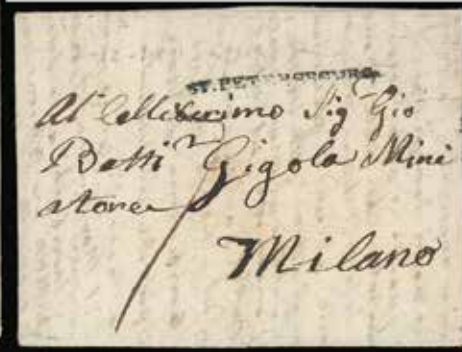 ST. PETERSBURG
Al Celleberrimo Sigr Gio
Battir Gigola Mini
atore
Milano